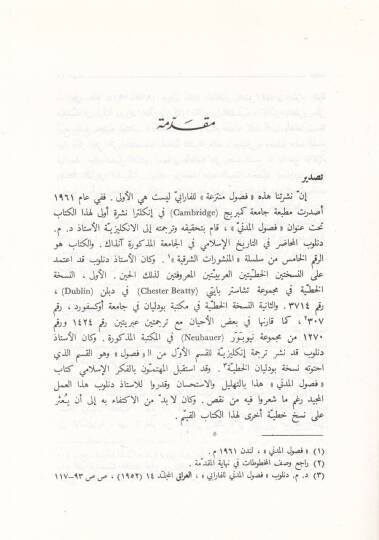 مقدّمة
تصدير
إنّ نشرتنا هذه « فصول منتزعة » للفارابيّ ليست هي الأولى . ففي عام ١٩٦١
أصدرت مطبعة جامعة كمبريج (Cambridge) في إنكلترا نشرة أولى لهذا الكتاب
تحت عنوان « فصول المدنيّ » ، قام بتحقيقه وترجمته إلى الانكليزيّة الأستاذ د. م.
دنلوب المحاضر في التاريخ الإسلامي في الجامعة المذكورة آنذاك . والكتاب هو
الرقم الخامس من سلسلة « المنشورات الشرقية »١ . وكان الأستاذ دنلوب قد اعتمد
على النسختين الخطيّتين العربيّتين المعروفتين لذلك الحين . الأولى ، النسخة
الخطيّة في مجموعة تشاستر بايتي (Chester Beatty) في دبلن (Dublin) ،
رقم ٣٧١٤ . والثانية النسخة الخطيّة في مكتبة بودليان في جامعة أوكسفورد ، رقم
٣٠٧٢ ، كما قارنها في بعض الأحيان مع ترجمتين عبريتين رقم ١٤٢٤ ورقم
١٢٧٠ من مجموعة نيوبوّر (Neubauer) في المكتبة المذكورة . وكان الأستاذ
دنلوب قد نشر ترجمة إنكليزيّة للقسم الأوّل من الـ « فصول » وهو القسم الذي
احتوته نسخة بودليان الخطيّة٣ . وقد استقبل المهتمّون بالفكر الإسلامي كتاب
« فصول المدنيّ » هذا بالتهليل والاستحسان وقدروا للاستاذ دنلوب هذا العمل
المجيد رغم ما شعروا فيه من نقص . وكان لا بدّ من الاكتفاء به إلى أن يُعثر
على نسخ خطيّة أخرى لهذا الكتاب القيّم .
(١) « فصول المدنيّ » ، لندن ١٩٦١ م .
(٢) راجع وصف المخطوطات في نهاية المقدّمة .
(٣) د. م. دنلوب « فصول المدني للفارابي » ، العراق المجلّد ١٤ (١٩٥٢) ، ص ص ٩٣-١١٧